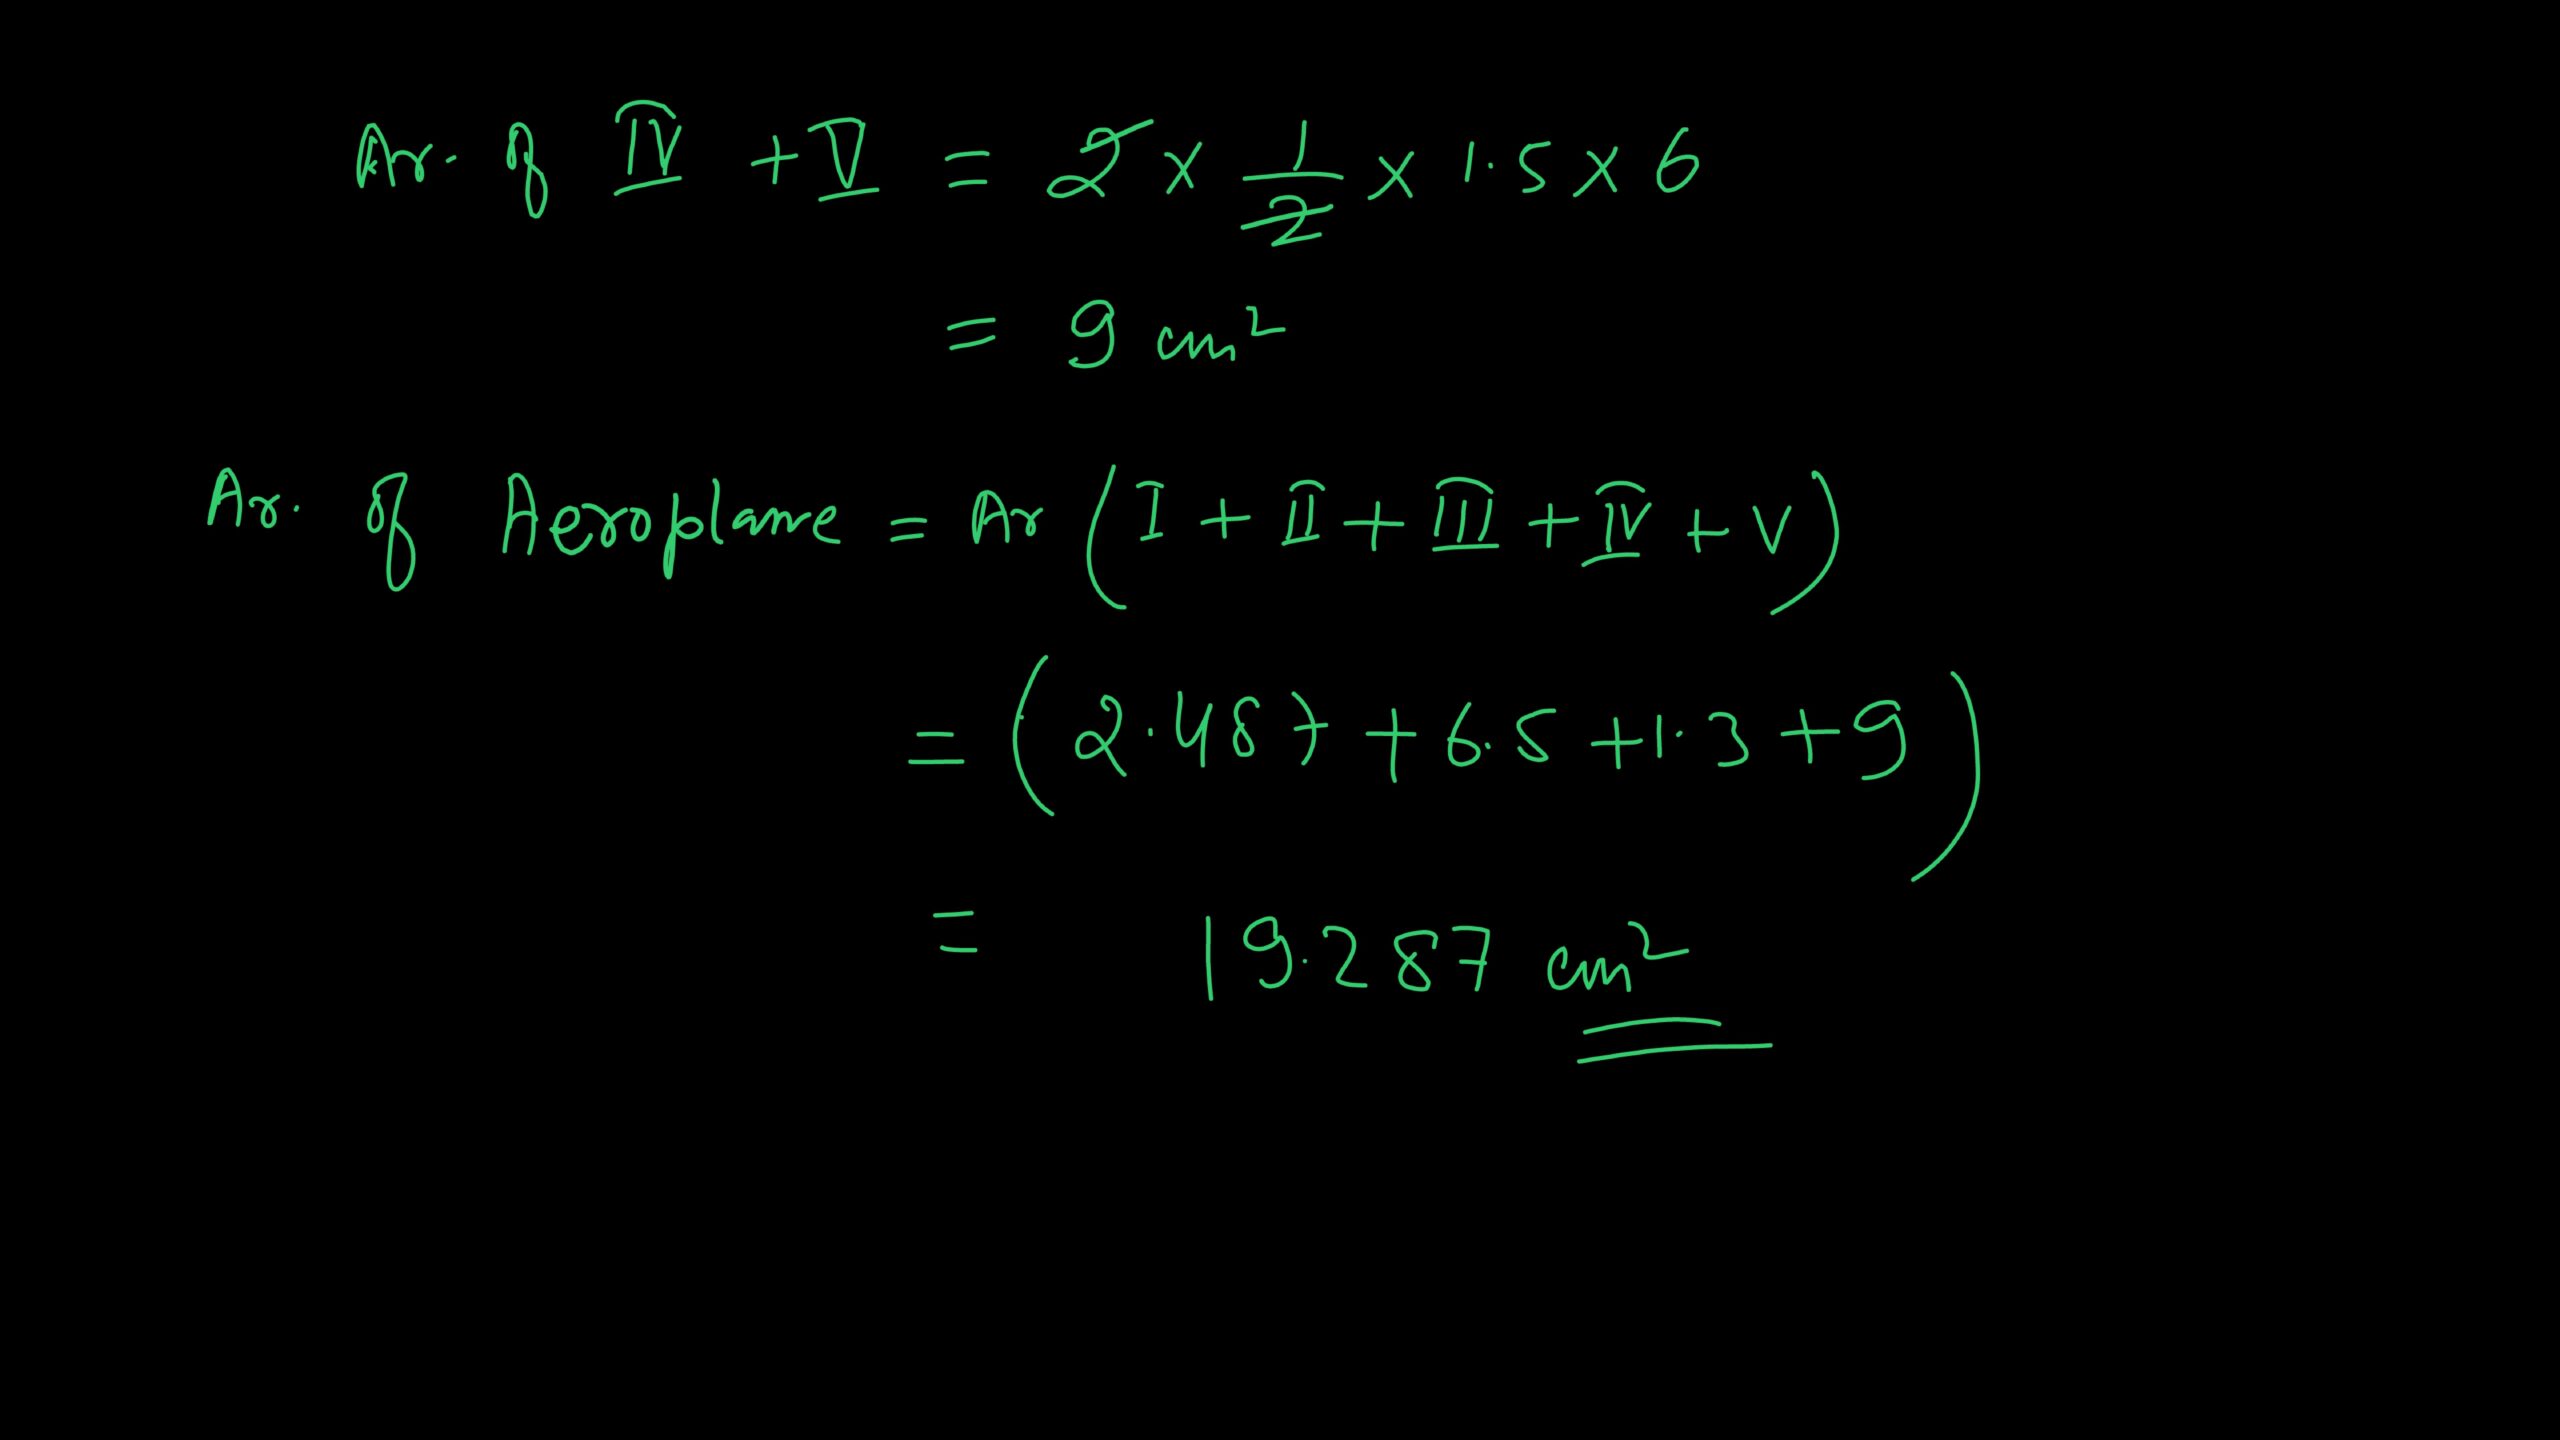 Ar. of IV + V = 2 × 1/2 × 1.5 × 6
= 9 cm²
Ar. of Aeroplane = Ar (I + II + III + IV + V)
= (2.487 + 6.5 + 1.3 + 9)
= 19.287 cm²